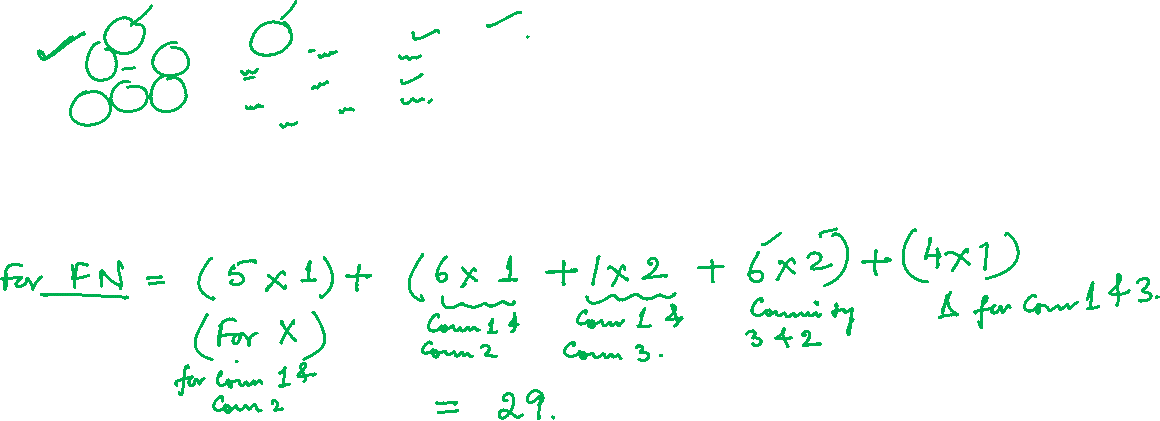 For FN = (5 x 1) + (6 x 1 + 1 x 2 + 6 x 2) + (4 x 1)
(For X)
for Comm 1 &
Comm 2
Comm 1 &
Comm 2
Comm 1 &
Comm 3.
Community
3 & 2
Δ for Comm 1 & 3.
= 29.